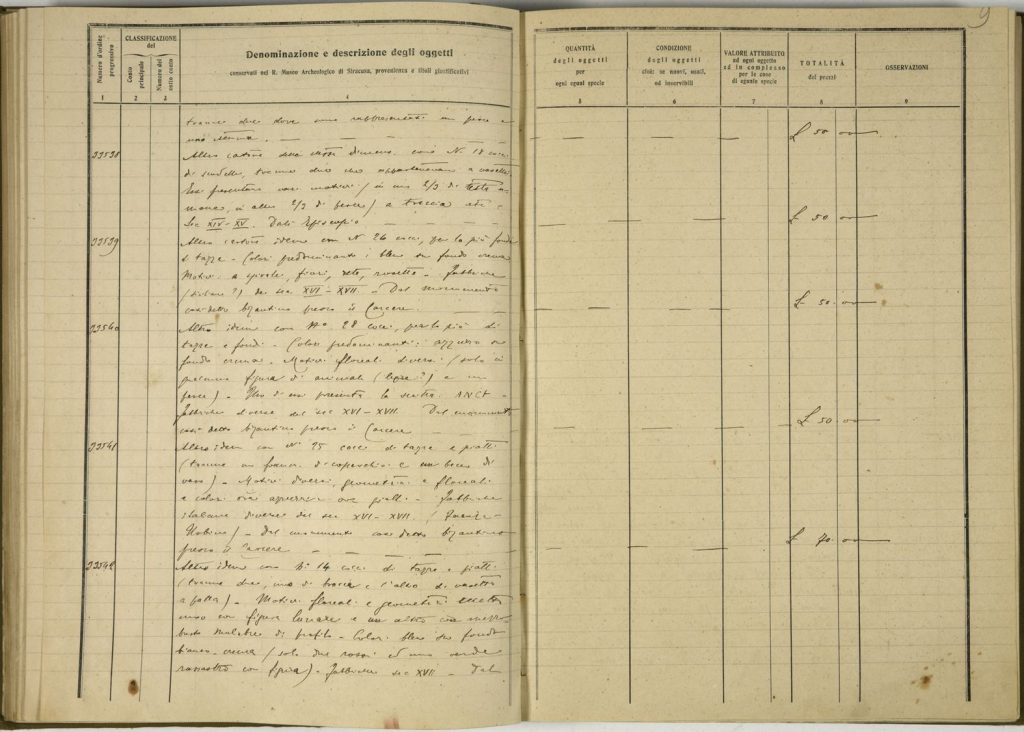 9
Numero d'ordine progressivo
CLASSIFICAZIONE del
Conto principale
Numero del sotto conto
Denominazione e descrizione degli oggetti
conservati nel R. Museo Archeologico di Siracusa, provenienza e titoli giustificativi
QUANTITÀ degli oggetti per ogni specie
CONDIZIONE degli oggetti cioè: se nuovi, usati, od inservibili
VALORE ATTRIBUITO ad ogni oggetto od in complesso per le cose di eguale specie
TOTALITÀ dei prezzi
OSSERVAZIONI
1 2 3 4 5 6 7 8 9
tranne due dove sono rappresentati un pesce e
una £ 50
33538 Altro cartone della stessa dimens. con N. 18 cocci
di scodelle, tranne due che appartenevano a vasetti.
Essi presentano vari motivi (in uno 2/3 di testa
in altro 2/3 di pesce) a treccia
Sec XIV - XV. Dall'Episcopio £ 50
33539 Altro cartone idem con N. 26 cocci, per lo più fondi
di tazze - Colori predominanti: bleu su fondo crema
Motivi a spirale, fiori, rete, rosetta - Fabbriche
(siciliane?) dei sec XVI - XVII - Dal monumento
così detto bizantino presso il Carcere £ 50
33540 Altro idem con N° 28 cocci, per lo più di
tazze e fondi - Colori predominanti: azzurro su
fondo crema - Motivi floreali diversi (solo in
figura di animali (lepre?) e un
pesce) - Uno di essi presenta la scritta ANCA -
Fabbriche diverse del sec XVI - XVII. Dal monumento
così detto bizantino presso il Carcere £ 50
33541 Altro idem con N° 25 cocci di tazze e piatti
(tranne un framm. di coperchio e un becco di
vaso) - Motivi diversi, geometrici e floreali
e colori
italiane diverse del sec XVI - XVII (Faenza -
Urbino) - Dal monumento così detto bizantino
presso il Carcere £ 70
33542 Altro idem con N° 14 cocci di tazze e piatti
(tranne due, uno di brocca e l'altro di vasetto
- Motivi floreali e geometrici
uno con figura lunare e un altro con mezzo
busto muliebre di profilo - Colori bleu su fondo
bianco-crema (solo due rossi ed uno verde
con figura) - Fabbriche sec XVII - Dal